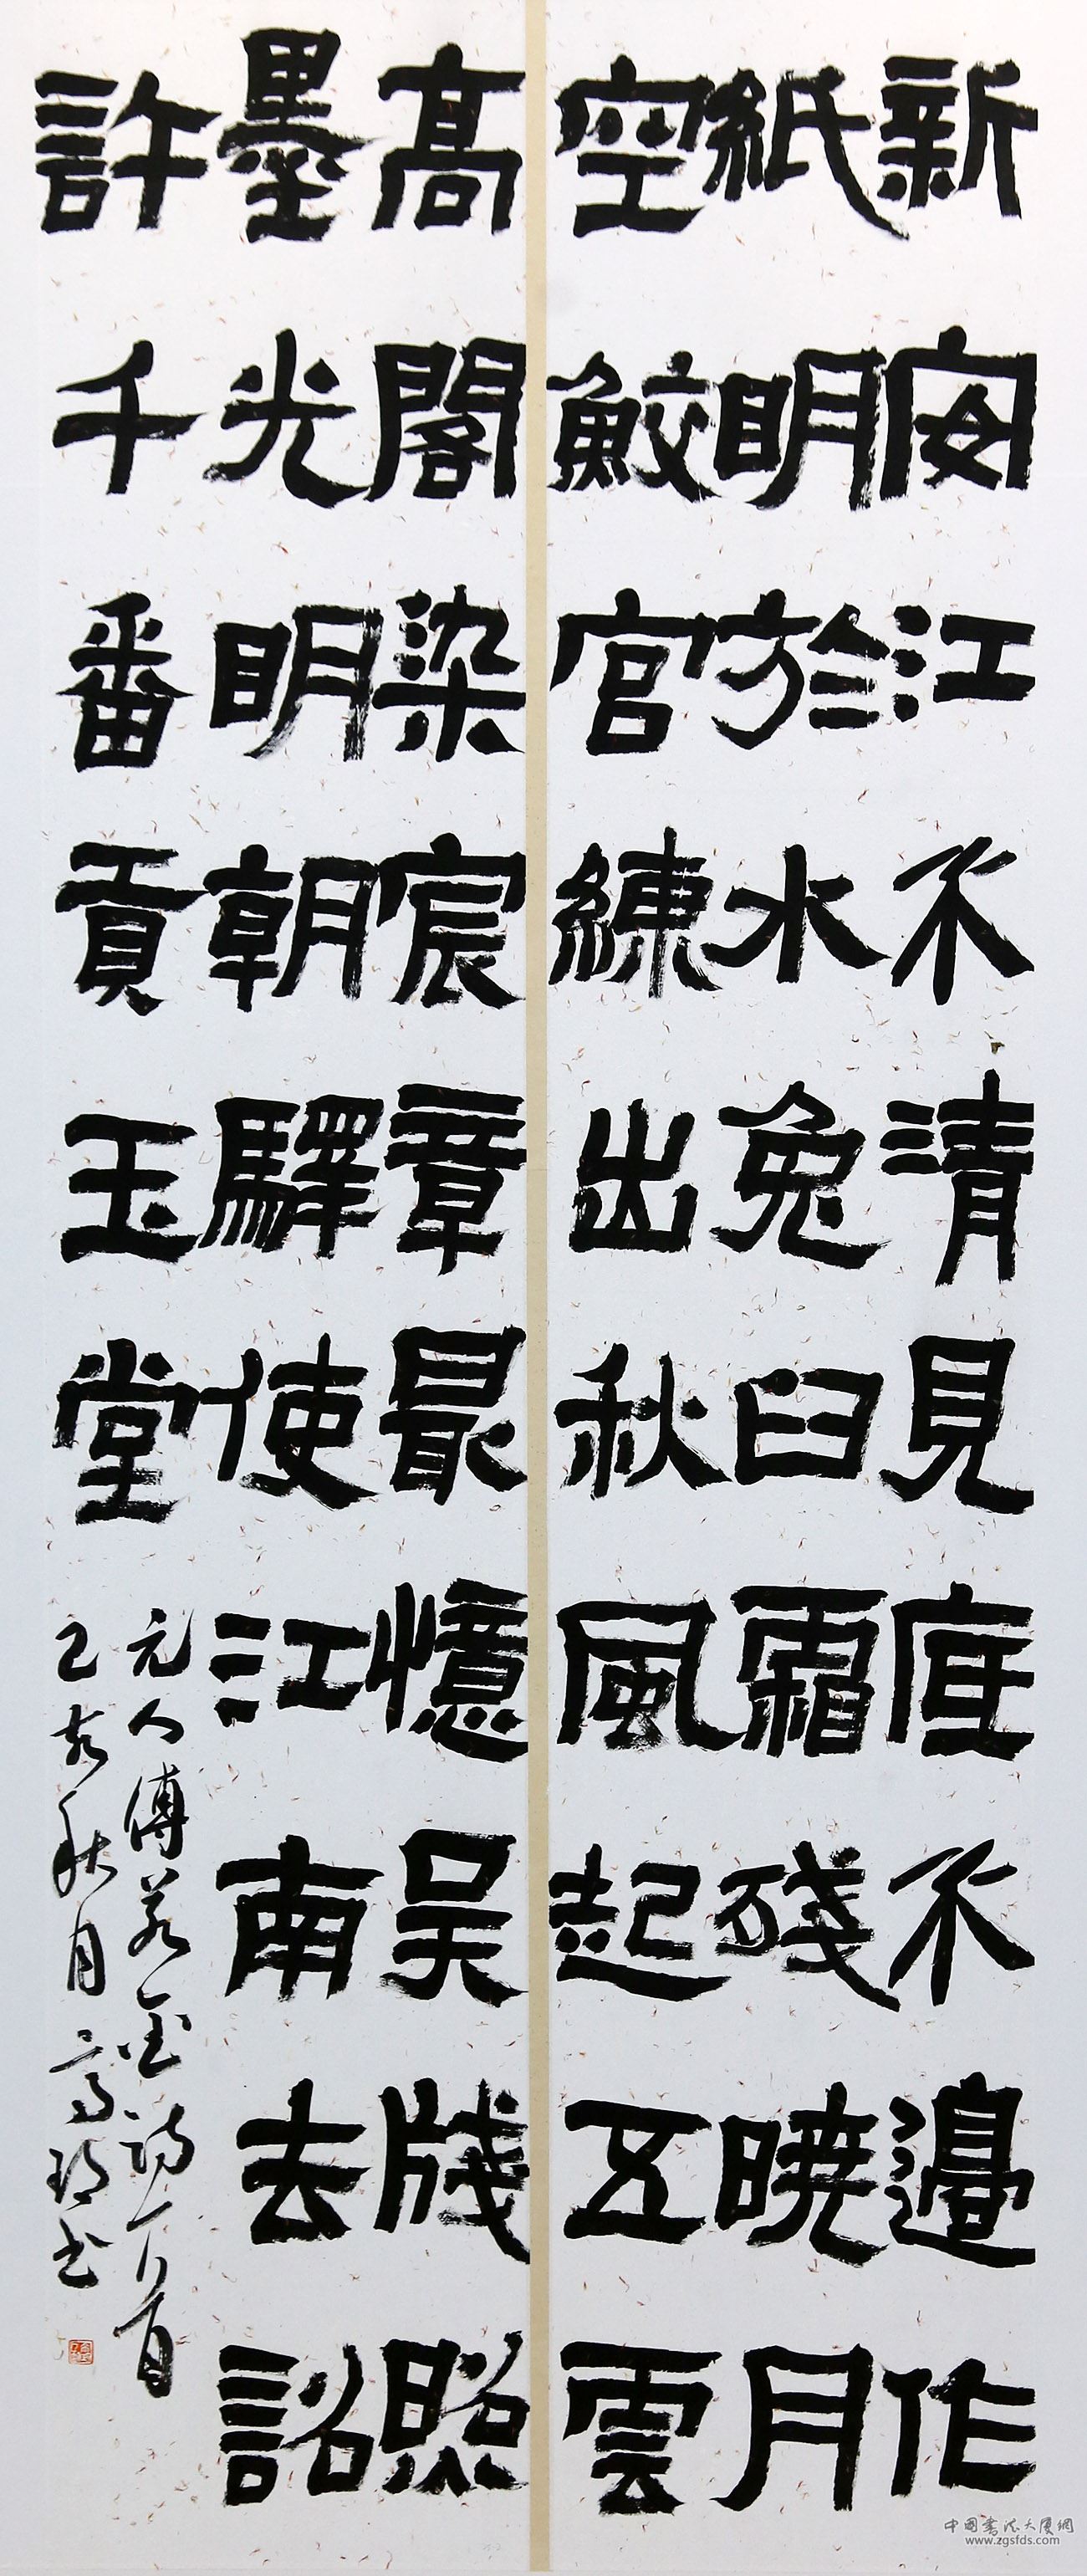 新安江水清見底水邊作
紙明於水兔臼霜殘曉月
空鮫宮練出秋風起五雲
高閣染宸章最憶吳牋照
墨光明朝驛使江南去詔
許千番貢玉堂
元人傅若金詩一首
秋月高书
中国书法大厦網
www.zgsfds.com